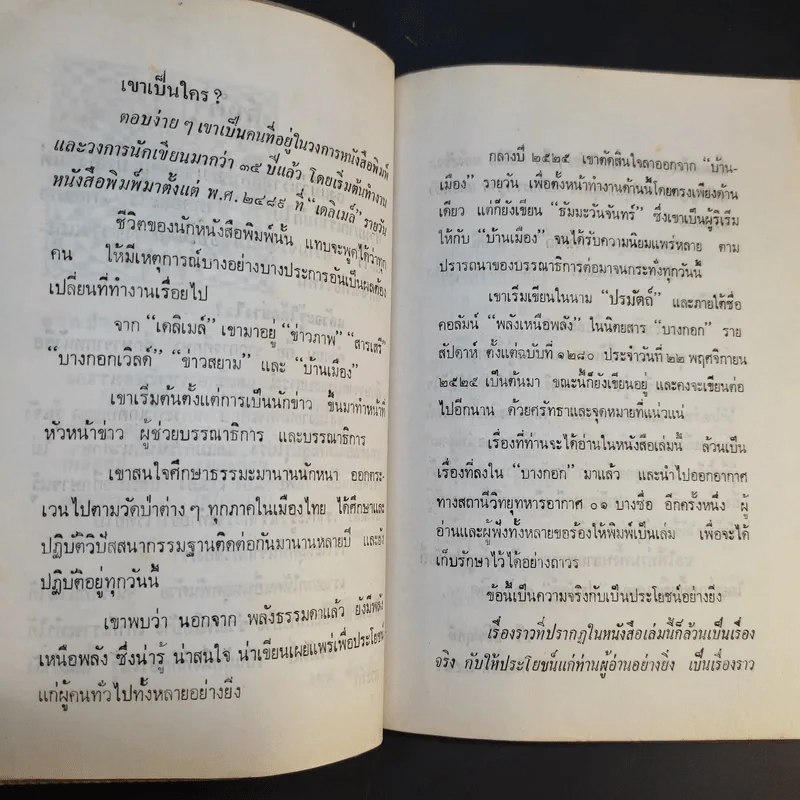 เขาเป็นใคร ?
ตอบง่าย ๆ เขาเป็นคนที่อยู่ในวงการหนังสือพิมพ์
และวงการนักเขียนมากว่า ๓๕ ปีแล้ว โดยเริ่มต้นทำงาน
หนังสือพิมพ์มาตั้งแต่ พ.ศ. ๒๔๘๙ ที่ “เดลิเมล์” รายวัน
ชีวิตของนักหนังสือพิมพ์นั้น แทบจะพูดได้ว่าทุก
คน ให้มีเหตุการณ์บางอย่างบางประการอันเป็นผลต้อง
เปลี่ยนที่ทำงานเรื่อยไป
จาก “เดลิเมล์” เขามาอยู่ “ข่าวภาพ” “สารเสรี”
“บางกอกเวิลด์” “ข่าวสยาม” และ “บ้านเมือง”
เขาเริ่มต้นตั้งแต่การเป็นนักข่าว ขึ้นมาทำหน้าที่
หัวหน้าข่าว ผู้ช่วยบรรณาธิการ และบรรณาธิการ
เขาสนใจศึกษาธรรมะมานานนักหนา ออกตระ-
เวนไปตามวัดป่าต่าง ๆ ทุกภาคในเมืองไทย ได้ศึกษาและ
ปฏิบัติวิปัสสนากรรมฐานติดต่อกันมานานหลายปี และยัง
ปฏิบัติอยู่ทุกวันนี้
เขาพบว่า นอกจาก พลังธรรมดาแล้ว ยังมีพลัง
เหนือพลัง ซึ่งน่ารู้ น่าสนใจ น่าเขียนเผยแพร่เพื่อประโยชน์
แก่ผู้คนทั่วไปทั้งหลายอย่างยิ่ง
กลางปี ๒๕๒๕ เขาตัดสินใจลาออกจาก “บ้าน-
เมือง” รายวัน เพื่อตั้งหน้าทำงานด้านนี้โดยตรงเพียงด้าน
เดียว แต่ก็ยังเขียน “ธัมมะวันจันทร์” ซึ่งเขาเป็นผู้ริเริ่ม
ให้กับ “บ้านเมือง” จนได้รับความนิยมแพร่หลาย ตาม
ปรารถนาของบรรณาธิการต่อมาจนกระทั่งทุกวันนี้
เขาเริ่มเขียนในนาม “ปรมัตถ์” และภายใต้ชื่อ
คอลัมน์ “พลังเหนือพลัง” ในนิตยสาร “บางกอก” ราย
สัปดาห์ ตั้งแต่ฉบับที่ ๑๒๘๐ ประจำวันที่ ๒๒ พฤศจิกายน
๒๕๒๕ เป็นต้นมา ขณะนี้ก็ยังเขียนอยู่ และคงจะเขียนต่อ
ไปอีกนาน ด้วยศรัทธาและจุดหมายที่แน่วแน่
เรื่องที่ท่านจะได้อ่านในหนังสือเล่มนี้ ล้วนเป็น
เรื่องที่ลงใน “บางกอก” มาแล้ว และนำไปออกอากาศ
ทางสถานีวิทยุทหารอากาศ ๐๑ บางซื่อ อีกครั้งหนึ่ง ผู้
อ่านและผู้ฟังทั้งหลายขอร้องให้พิมพ์เป็นเล่ม เพื่อจะได้
เก็บรักษาไว้ได้อย่างถาวร
ข้อนี้เป็นความจริงกับเป็นประโยชน์อย่างยิ่ง
เรื่องราวที่ปรากฏในหนังสือเล่มนี้ก็ล้วนเป็นเรื่อง
จริง กับให้ประโยชน์แก่ท่านผู้อ่านอย่างยิ่ง เป็นเรื่องราว